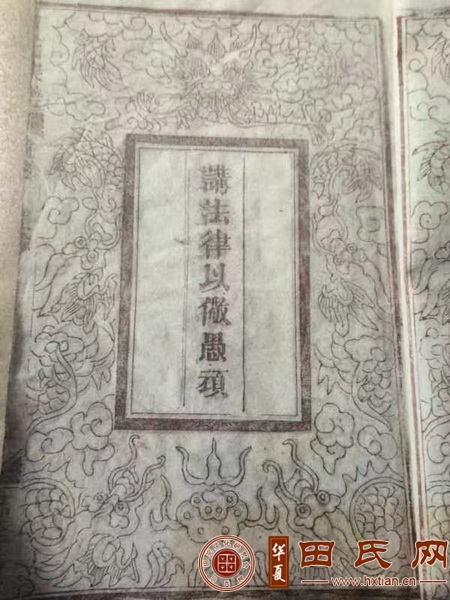 講法律以儆愚頑
华夏
田氏网
www.hxtian.cn